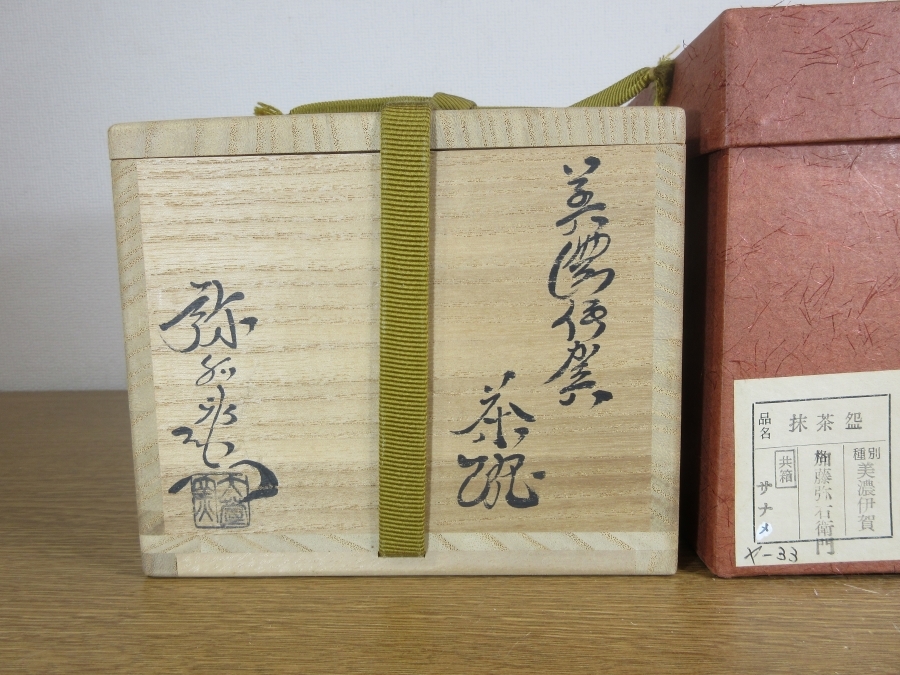 美濃伊賀
茶盌
弥右衛門
品名
抹茶盌
種別
美濃伊賀
加藤弥右衛門
共箱
サナメ
ヤ-33